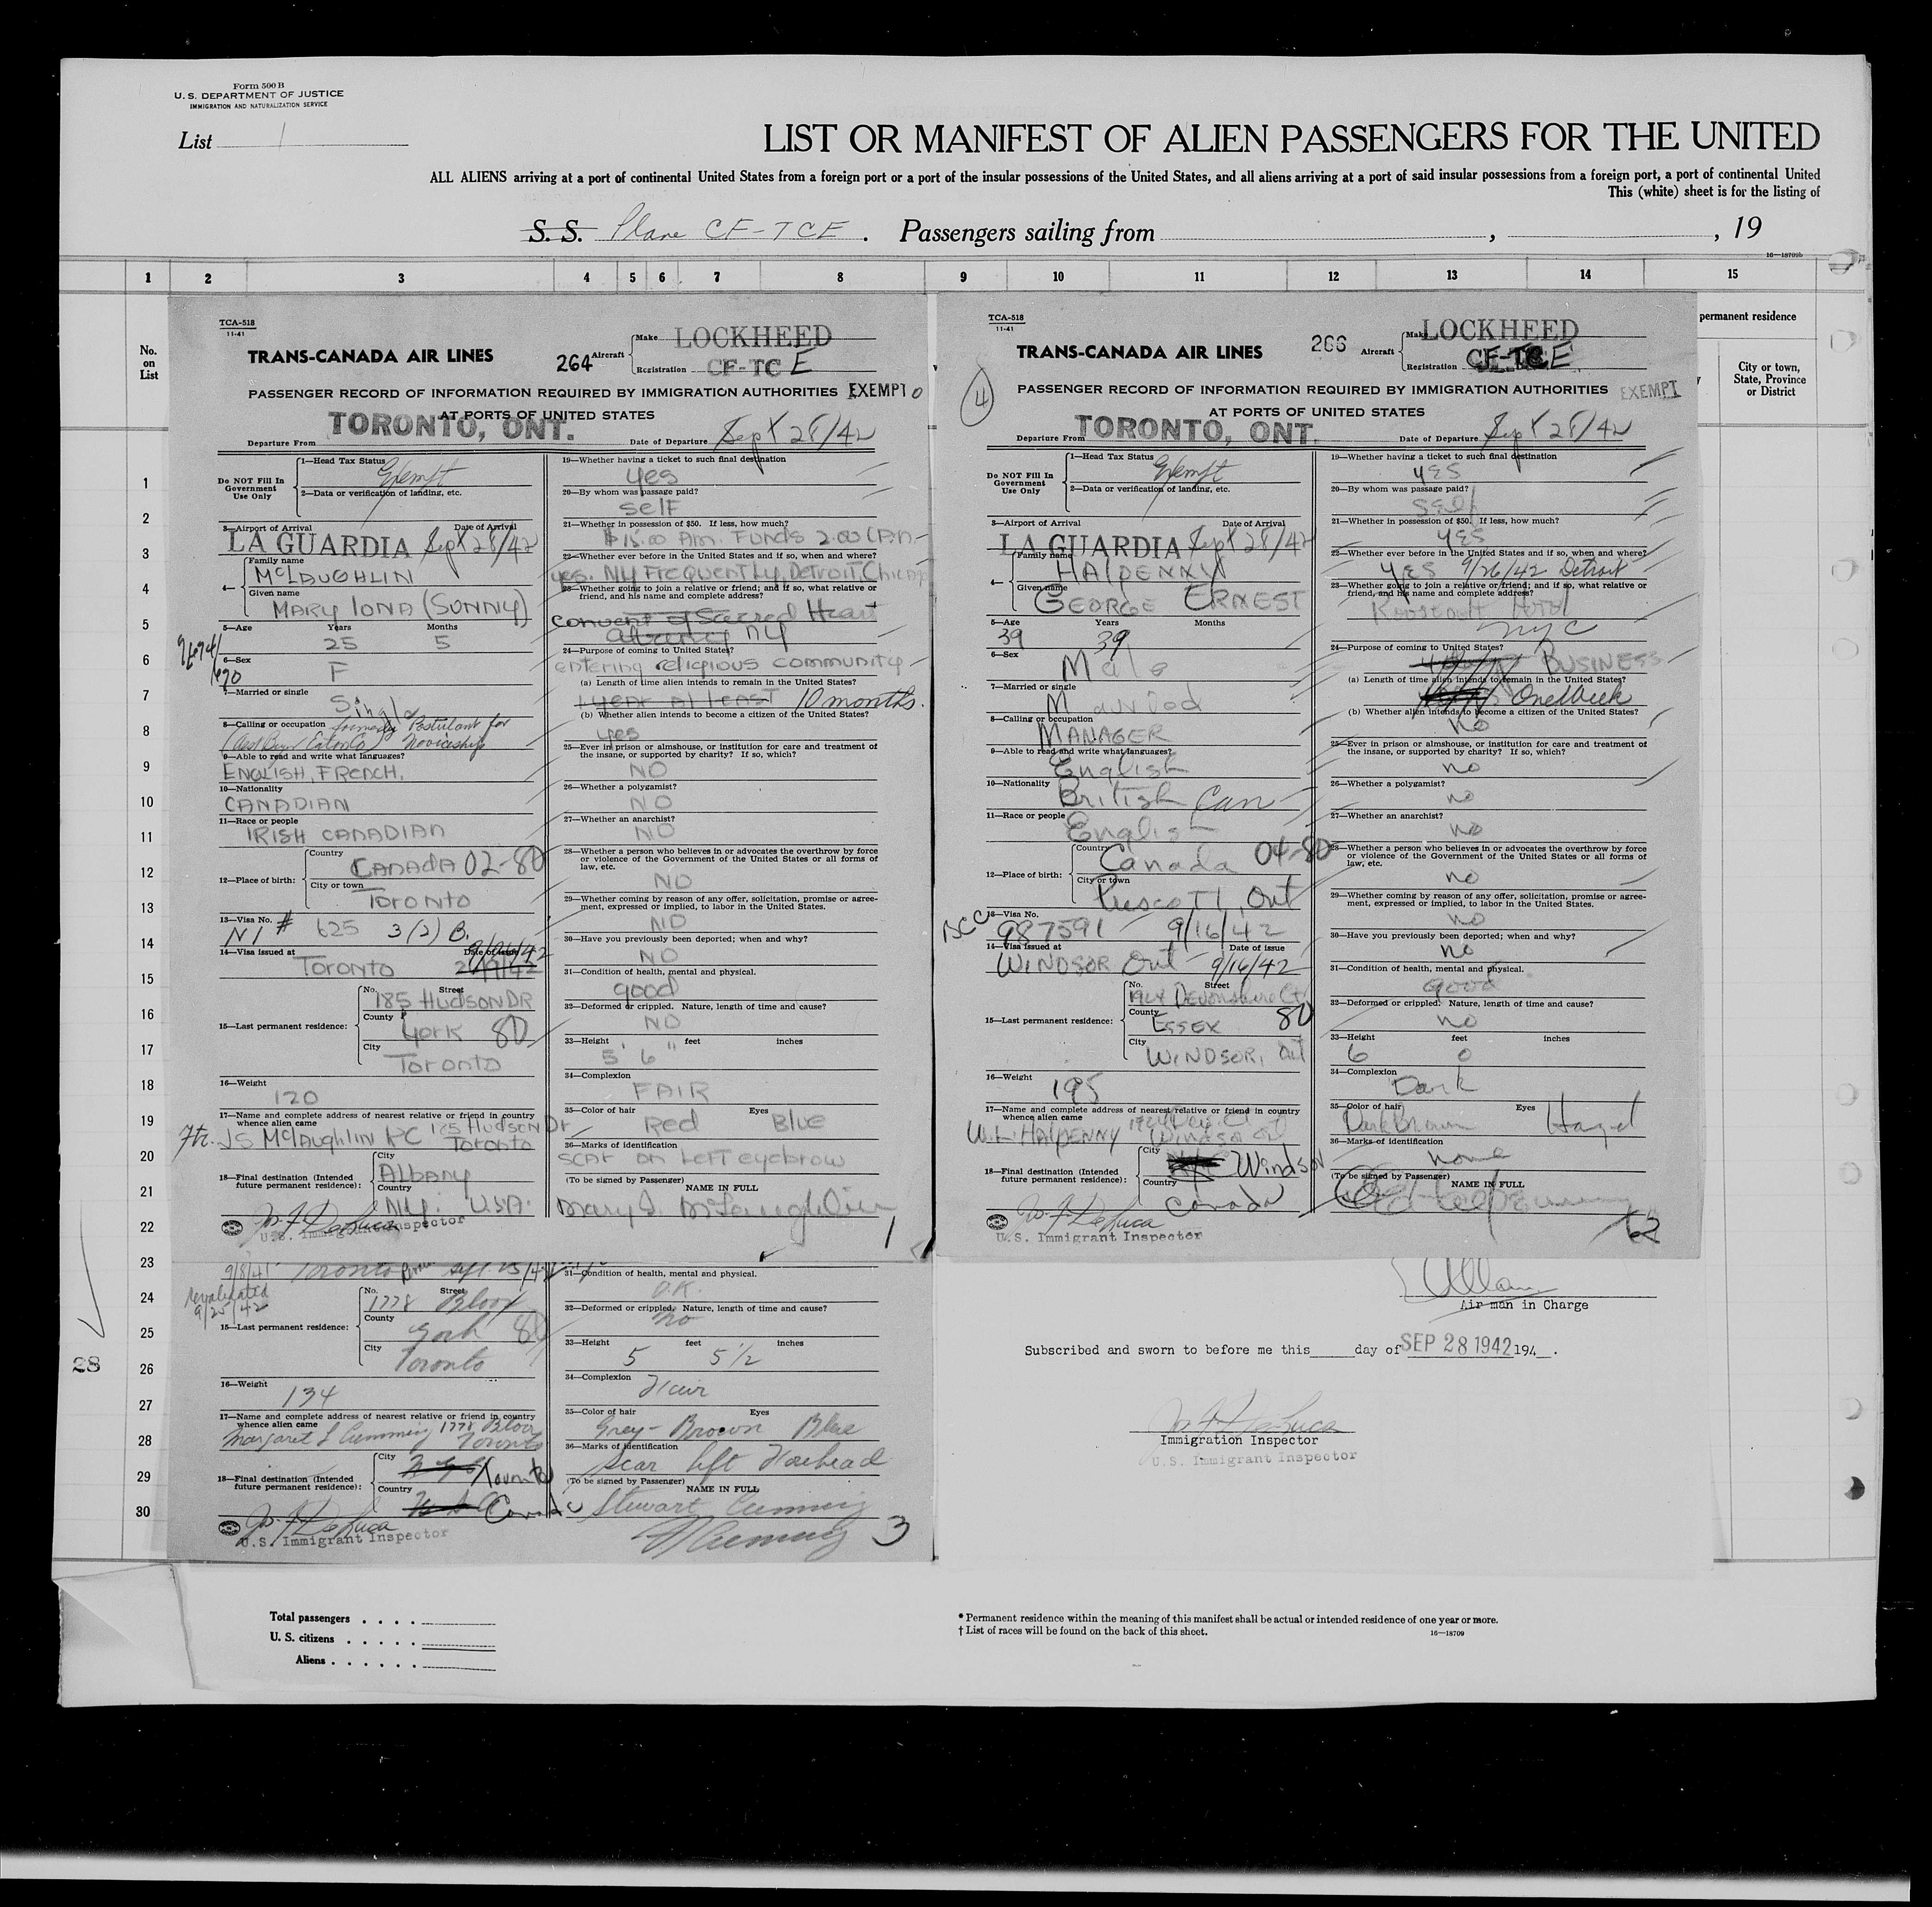 Form 500 B
U. S. DEPARTMENT OF JUSTICE
IMMIGRATION AND NATURALIZATION SERVICE
List 1
LIST OR MANIFEST OF ALIEN PASSENGERS FOR THE UNITED
ALL ALIENS arriving at a port of continental United States from a foreign port or a port of the insular possessions of the United States, and all aliens arriving at a port of said insular possessions from a foreign port, a port of continental United
This (white) sheet is for the listing of
S. S. Plane CF-TCE . Passengers sailing from , , 19
16—18709b
1 2 3 4 5 6 7 8 9 10 11 12 13 14 15
No. on List
permanent residence
City or town, State, Province or District
1
2
3
4
5
6
7
8
9
10
11
12
13
14
15
16
17
18
19
20
21
22
23
24
25
26
27
28
29
30
28
TCA-518
11-41
TRANS-CANADA AIR LINES
264 Aircraft
Make LOCKHEED
Registration CF-TC E
PASSENGER RECORD OF INFORMATION REQUIRED BY IMMIGRATION AUTHORITIES EXEMPT
AT PORTS OF UNITED STATES
Departure From TORONTO, ONT. Date of Departure Sept 28/42
Do NOT Fill In Government Use Only
1—Head Tax Status Exempt
2—Data or verification of landing, etc.
3—Airport of Arrival Date of Arrival
LA GUARDIA Sept 28/42
4— Family name
McLAUGHLIN
Given name
MARY IONA (SUNNY)
5—Age Years Months
25 5
6—Sex
F
7—Married or single
Single
8—Calling or occupation formerly Postulant for
Novice ship
9—Able to read and write what languages?
ENGLISH, FRENCH,
10—Nationality
CANADIAN
11—Race or people
IRISH CANADIAN
12—Place of birth:
Country
CANADA 02-80
City or town
Toronto
13—Visa No. #
NI 625 3(2) B.
14—Visa issued at Date of issue 9/26/42
Toronto
15—Last permanent residence:
No. Street
185 HUDSON DR
County
York 80
City
Toronto
16—Weight
120
17—Name and complete address of nearest relative or friend in country whence alien came
Ftr. JS McLaughlin KC 185 Hudson Dr Toronto
18—Final destination (Intended future permanent residence):
City
Albany
Country
N.Y. U.S.A.
U.S. Immigrant Inspector
19—Whether having a ticket to such final destination
yes
20—By whom was passage paid?
self
21—Whether in possession of $50. If less, how much?
$15.00 Am. Funds 2.00 CAN-
22—Whether ever before in the United States and if so, when and where?
yes. NY FREQUENTLY, DETROIT, Chicago
23—Whether going to join a relative or friend; and if so, what relative or friend, and his name and complete address?
Convent of Sacred Heart
Albany NY
24—Purpose of coming to United States?
entering religious community
(a) Length of time alien intends to remain in the United States?
1 year at least 10 months.
(b) Whether alien intends to become a citizen of the United States?
yes
25—Ever in prison or almshouse, or institution for care and treatment of the insane, or supported by charity? If so, which?
NO
26—Whether a polygamist?
NO
27—Whether an anarchist?
NO
28—Whether a person who believes in or advocates the overthrow by force or violence of the Government of the United States or all forms of law, etc.
NO
29—Whether coming by reason of any offer, solicitation, promise or agreement, expressed or implied, to labor in the United States.
NO
30—Have you previously been deported; when and why?
NO
31—Condition of health, mental and physical.
good
32—Deformed or crippled. Nature, length of time and cause?
NO
33—Height feet inches
5' 6"
34—Complexion
FAIR
35—Color of hair Eyes
Red Blue
36—Marks of identification
SCAR on Left eyebrow
(To be signed by Passenger)
NAME IN FULL
Mary I. McLaughlin
1
TCA-518
11-41
TRANS-CANADA AIR LINES
266 Aircraft
Make LOCKHEED
Registration CF-TCE
PASSENGER RECORD OF INFORMATION REQUIRED BY IMMIGRATION AUTHORITIES EXEMPT
4
AT PORTS OF UNITED STATES
Departure From TORONTO, ONT. Date of Departure Sept 28/42
Do NOT Fill In Government Use Only
1—Head Tax Status Exempt
2—Data or verification of landing, etc.
3—Airport of Arrival Date of Arrival
LA GUARDIA Sept 28/42
4— Family name
HALPENNY
Given name
GEORGE ERNEST
5—Age Years Months
39 39
6—Sex
Male
7—Married or single
Married
8—Calling or occupation
MANAGER
9—Able to read and write what languages?
English
10—Nationality
British Can
11—Race or people
English
12—Place of birth:
Country
Canada 04-80
City or town
Prescott, Ont
13—Visa No.
BCC 987591 9/16/42
14—Visa issued at Date of issue
WINDSOR Ont 9/16/42
15—Last permanent residence:
No. Street
Devonshire Ct
County
ESSEX 80
City
WINDSOR, Ont
16—Weight
195
17—Name and complete address of nearest relative or friend in country whence alien came
W.L. HALPENNY
18—Final destination (Intended future permanent residence):
City
Windsor
Country
Canada
U.S. Immigrant Inspector
19—Whether having a ticket to such final destination
YES
20—By whom was passage paid?
Self
21—Whether in possession of $50. If less, how much?
YES
22—Whether ever before in the United States and if so, when and where?
YES 9/26/42 Detroit
23—Whether going to join a relative or friend; and if so, what relative or friend, and his name and complete address?
Roosevelt Hotel
NYC
24—Purpose of coming to United States?
BUSINESS
(a) Length of time alien intends to remain in the United States?
One Week
(b) Whether alien intends to become a citizen of the United States?
No
25—Ever in prison or almshouse, or institution for care and treatment of the insane, or supported by charity? If so, which?
no
26—Whether a polygamist?
no
27—Whether an anarchist?
no
28—Whether a person who believes in or advocates the overthrow by force or violence of the Government of the United States or all forms of law, etc.
no
29—Whether coming by reason of any offer, solicitation, promise or agreement, expressed or implied, to labor in the United States.
no
30—Have you previously been deported; when and why?
no
31—Condition of health, mental and physical.
good
32—Deformed or crippled. Nature, length of time and cause?
no
33—Height feet inches
6 0
34—Complexion
Dark
35—Color of hair Eyes
Dark Brown Hazel
36—Marks of identification
none
(To be signed by Passenger)
NAME IN FULL
9/8/41 Toronto
revalidated
9/25/42
15—Last permanent residence:
No. Street
1778 Bloor
County
York 80
City
Toronto
16—Weight
134
17—Name and complete address of nearest relative or friend in country whence alien came
Margaret L Cumming 1778 Bloor
Toronto
18—Final destination (Intended future permanent residence):
City
Toronto
Country
Canada
U.S. Immigrant Inspector
31—Condition of health, mental and physical.
O.K.
32—Deformed or crippled. Nature, length of time and cause?
no
33—Height feet inches
5 5 1/2
34—Complexion
Fair
35—Color of hair Eyes
Grey-Brown Blue
36—Marks of identification
Scar left Forehead
(To be signed by Passenger)
NAME IN FULL
Stewart Cumming
3
Air man in Charge
Subscribed and sworn to before me this day of SEP 28 1942 194 .
Immigration Inspector
U.S. Immigrant Inspector
Total passengers . . . .
U. S. citizens . . . . .
Aliens . . . . . .
* Permanent residence within the meaning of this manifest shall be actual or intended residence of one year or more.
† List of races will be found on the back of this sheet.
16—18709